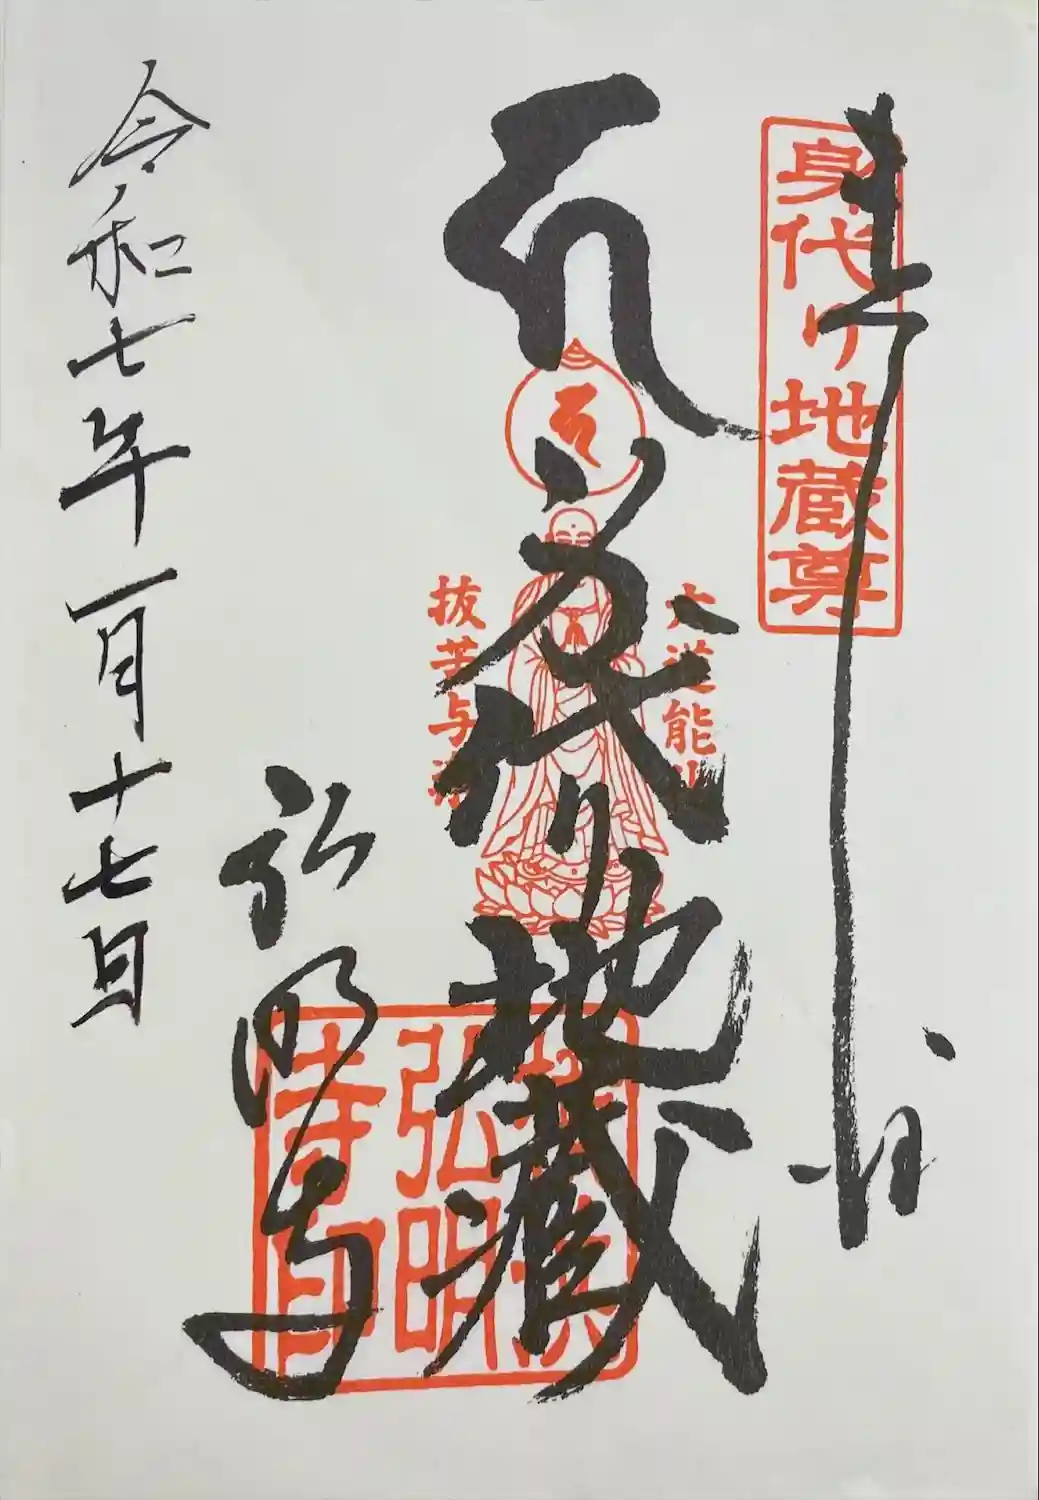 奉拝
身代り地蔵尊
身代り地蔵
六道能化
抜苦与楽
弘明寺
横浜
弘明
寺印
令和七年一月十七日